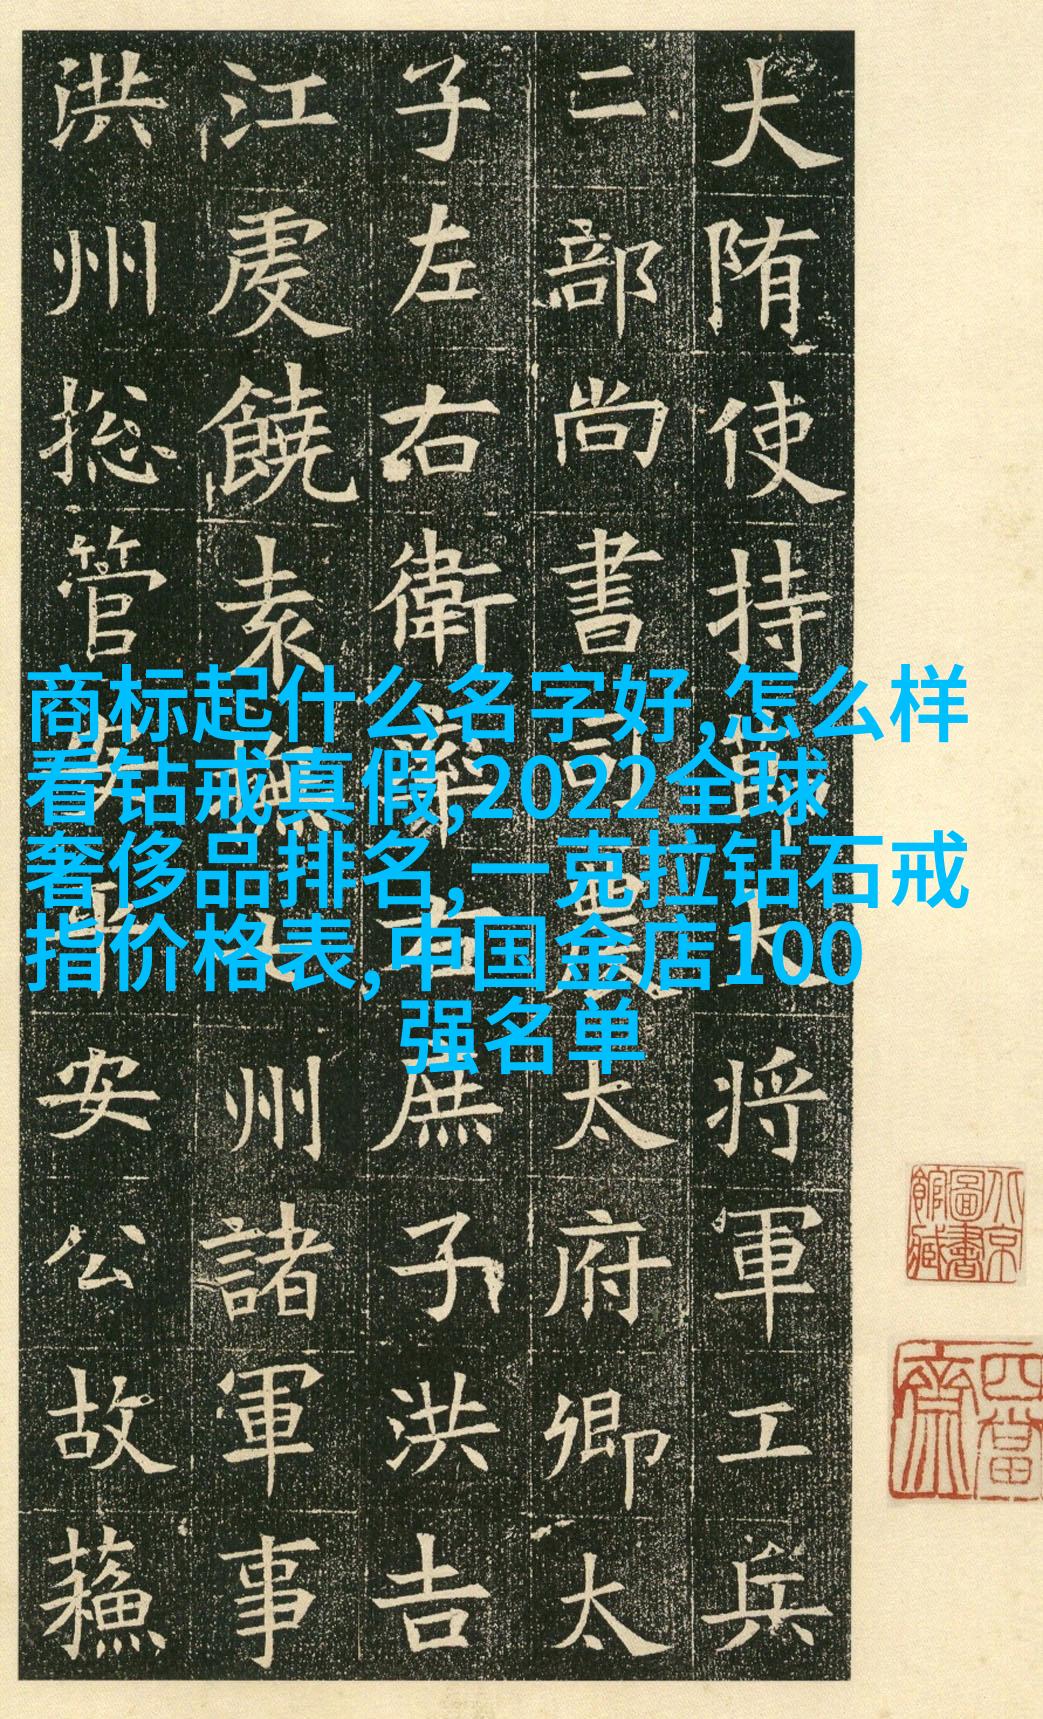 大陏使持將軍工兵
二部尚書司農太府卿太
子左右衛率右庶子洪吉
江虔饒袁撫七州諸軍事
洪州揔管安公故蘓
商标起什么名字好,怎么样
看钻戒真假,2022全球
奢侈品排名,一克拉钻石戒
指价格表,中国金店100
强名单
北京
圖書
館藏
四當
齋